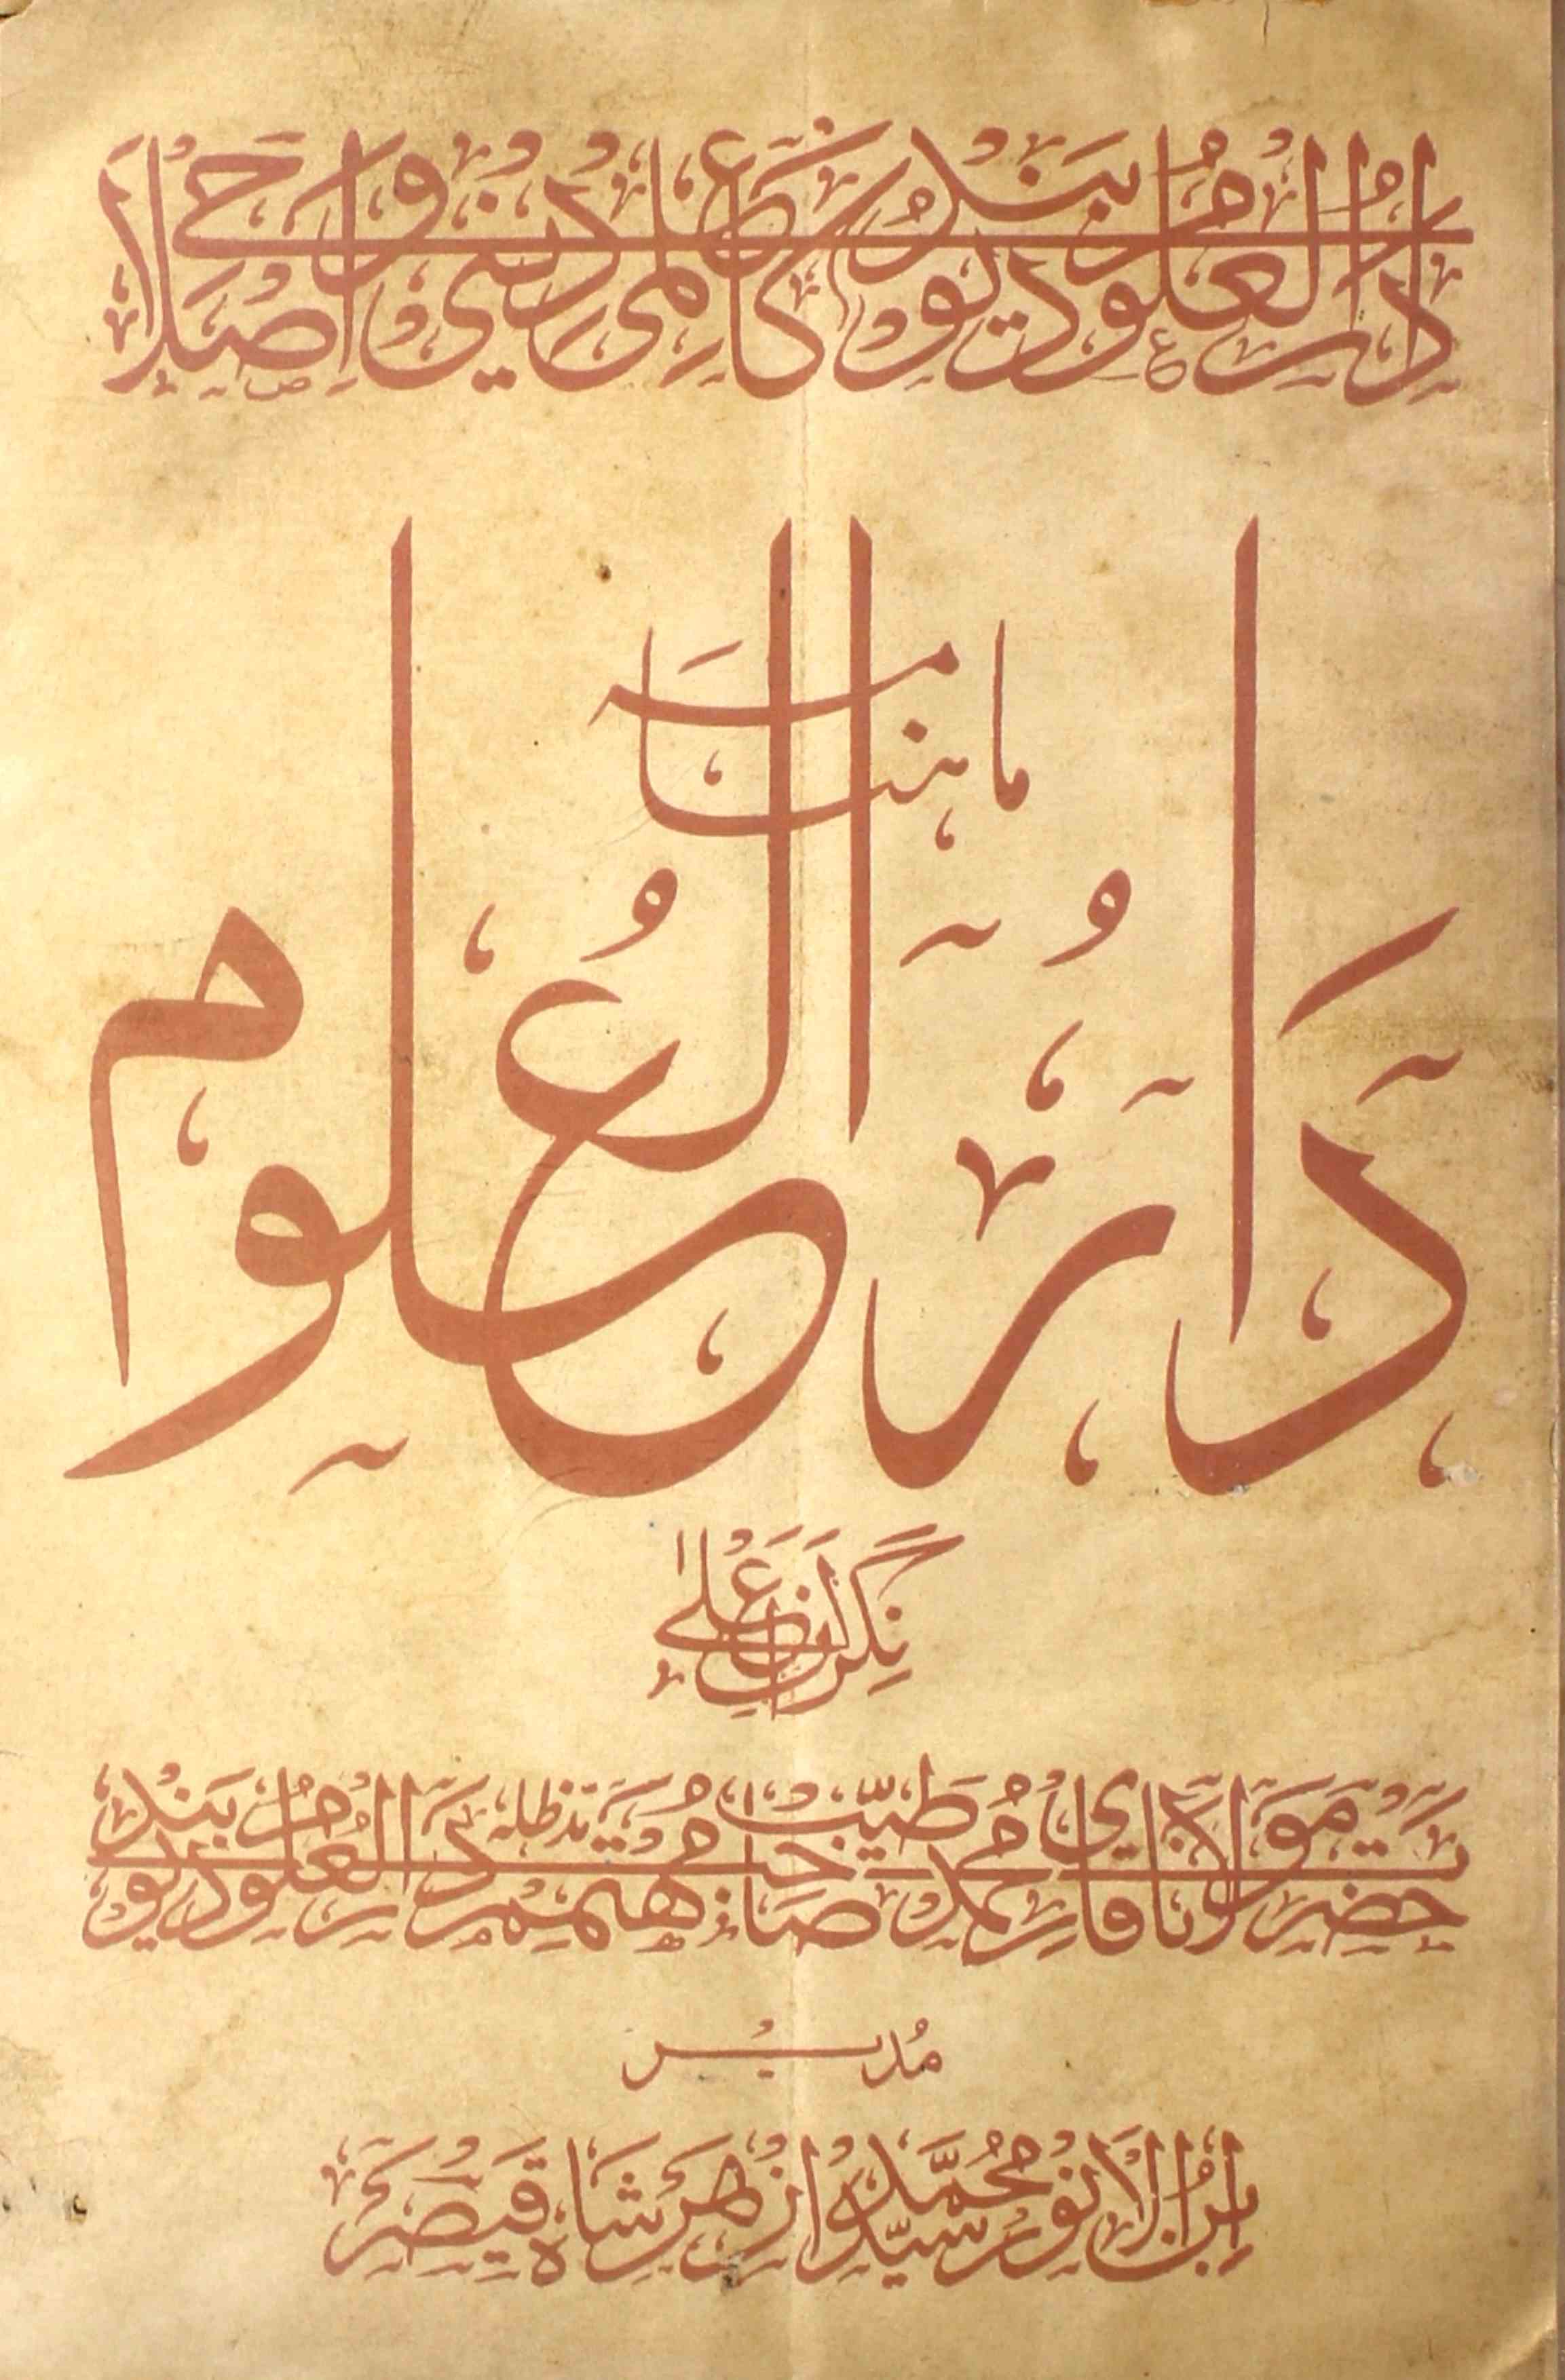 دارالعلوم دیوبند کا علمی، دینی و اصلاحی
ماہنامہ
دَارُالعُلوم
نِگرانِ اَعْلیٰ
حضرت مولانا قاری محمد طیّب صاحب مدظلہ مہتمم دارالعلوم دیوبند
مُدیر
ابن الانور سید محمد ازہر شاہ قیصر